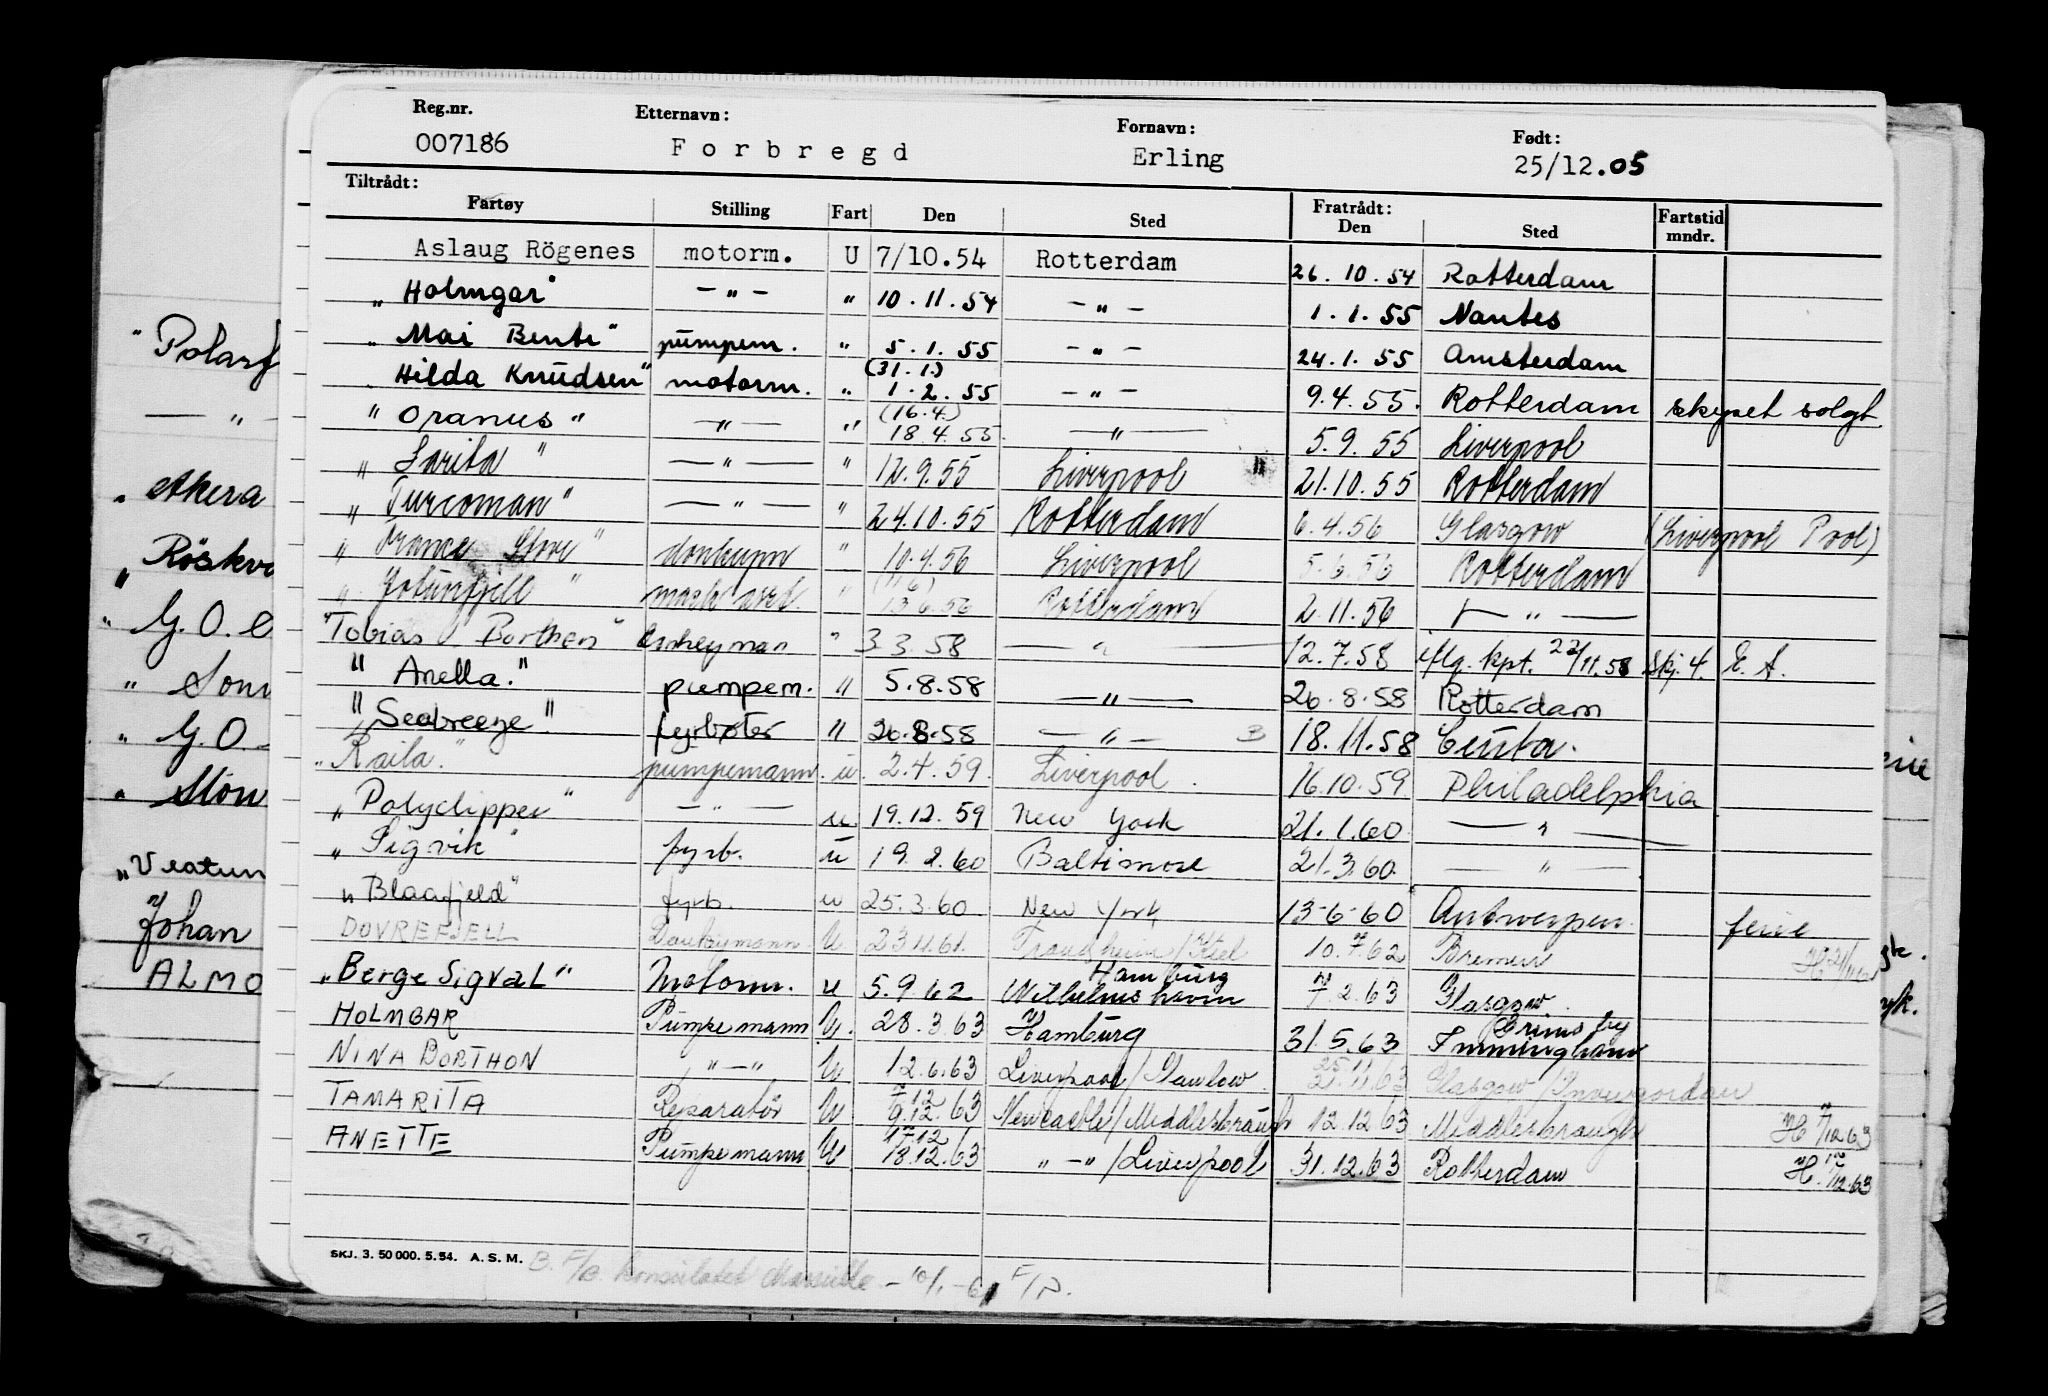 Reg.nr. Etternavn: Fornavn: Født:
007186 Forbregd Erling 25/12.05
Tiltrådt: Fratrådt:
Fartøy Stilling Fart Den Sted Den Sted Fartstid mndr.
Aslaug Rögenes motorm. U 7/10.54 Rotterdam 26.10.54 Rotterdam
„ Holmgar" — " — " 10.11.54 — " — 1.1.55 Nantes
„ Mai Bente" pumpem. " 5.1.55 — " — 24.1.55 Amsterdam
„ Hilda Knudsen" motorm. " (31.1.) 1.2.55 — " 9.4.55. Rotterdam skipet solgt
" Oranus " — " — " (16.4.) 18.4.55. — " — 5.9.55 Liverpool
„ Sarita " — " — " 12.9.55 Liverpool " 21.10.55 Rotterdam
„ Turcoman" — " — " 24.10.55 Rotterdam 6.4.56 Glasgow (Liverpool Pool)
„ France Stove " donkeym " 10.4.56 Liverpool 5.6.56 Rotterdam
„ Jotunfjell " mask ass. " (11/6) 13.6.56 Rotterdam 2.11.56 — " —
"Tobias Borthen" donkeyman " 3.3.58 — " — 12.7.58 iflg. kpt. 22/11.58 skj. 4. E. A.
" Anella." pumpem. " 5.8.58 — " — 26.8.58 Rotterdam
" Seabreeze". fyrbøter " 26.8.58 — " — B 18.11.58 Ceuta.
„ Raila." pumpemann. u. 2.4.59. Liverpool. 16.10.59 Philadelphia
„ Polyclipper" — " — u. 19.12.59 New York 21.1.60 — " —
„ Sigvik" fyrb. u 19.2.60 Baltimore 21.3.60. — " —
„ Blaafjeld" fyrb. u 25.3.60 New York 13-6-60 Antwerpen. ferie
DOVREFJELL Donkeymann. U. 23.11.61. Trondheim/Kiel 10.7.62 Bremen
„Berge Sigval" Motorm. u 5.9.62 Hamburg Wilhelmshaven 7.2.63 Glasgow.
HOLMGAR Pumpemann U. 28.3.63 Hamburg 31.5.63 Grimsby Immingham
NINA BORTHON " — " U 12.6.63 Liverpool/Stanlow. 25.11 21.11.63 Glasgow/Invergordon
TAMARITA Reparatør U 7.12 9.12.63 Newcastle/Middlesbrough 12.12.63 Middlesbrough H 7/12.63
ANETTE Pumpemann U 17.12 18.12.63 " — "/Liverpool 31.12.63 Rotterdam H. 17/12.63
SKJ. 3. 50 000. 5. 54. A. S. M. B. F/B. Konsulatet Marseille - 10/1.-61 F/P.
"Polarf
— " —
„ Akera
„ Röskva
„ G. O. C
" Som
„ G. O.
„ Ston
„Veatun
Johan
ALMO
erie
sk.
yk.